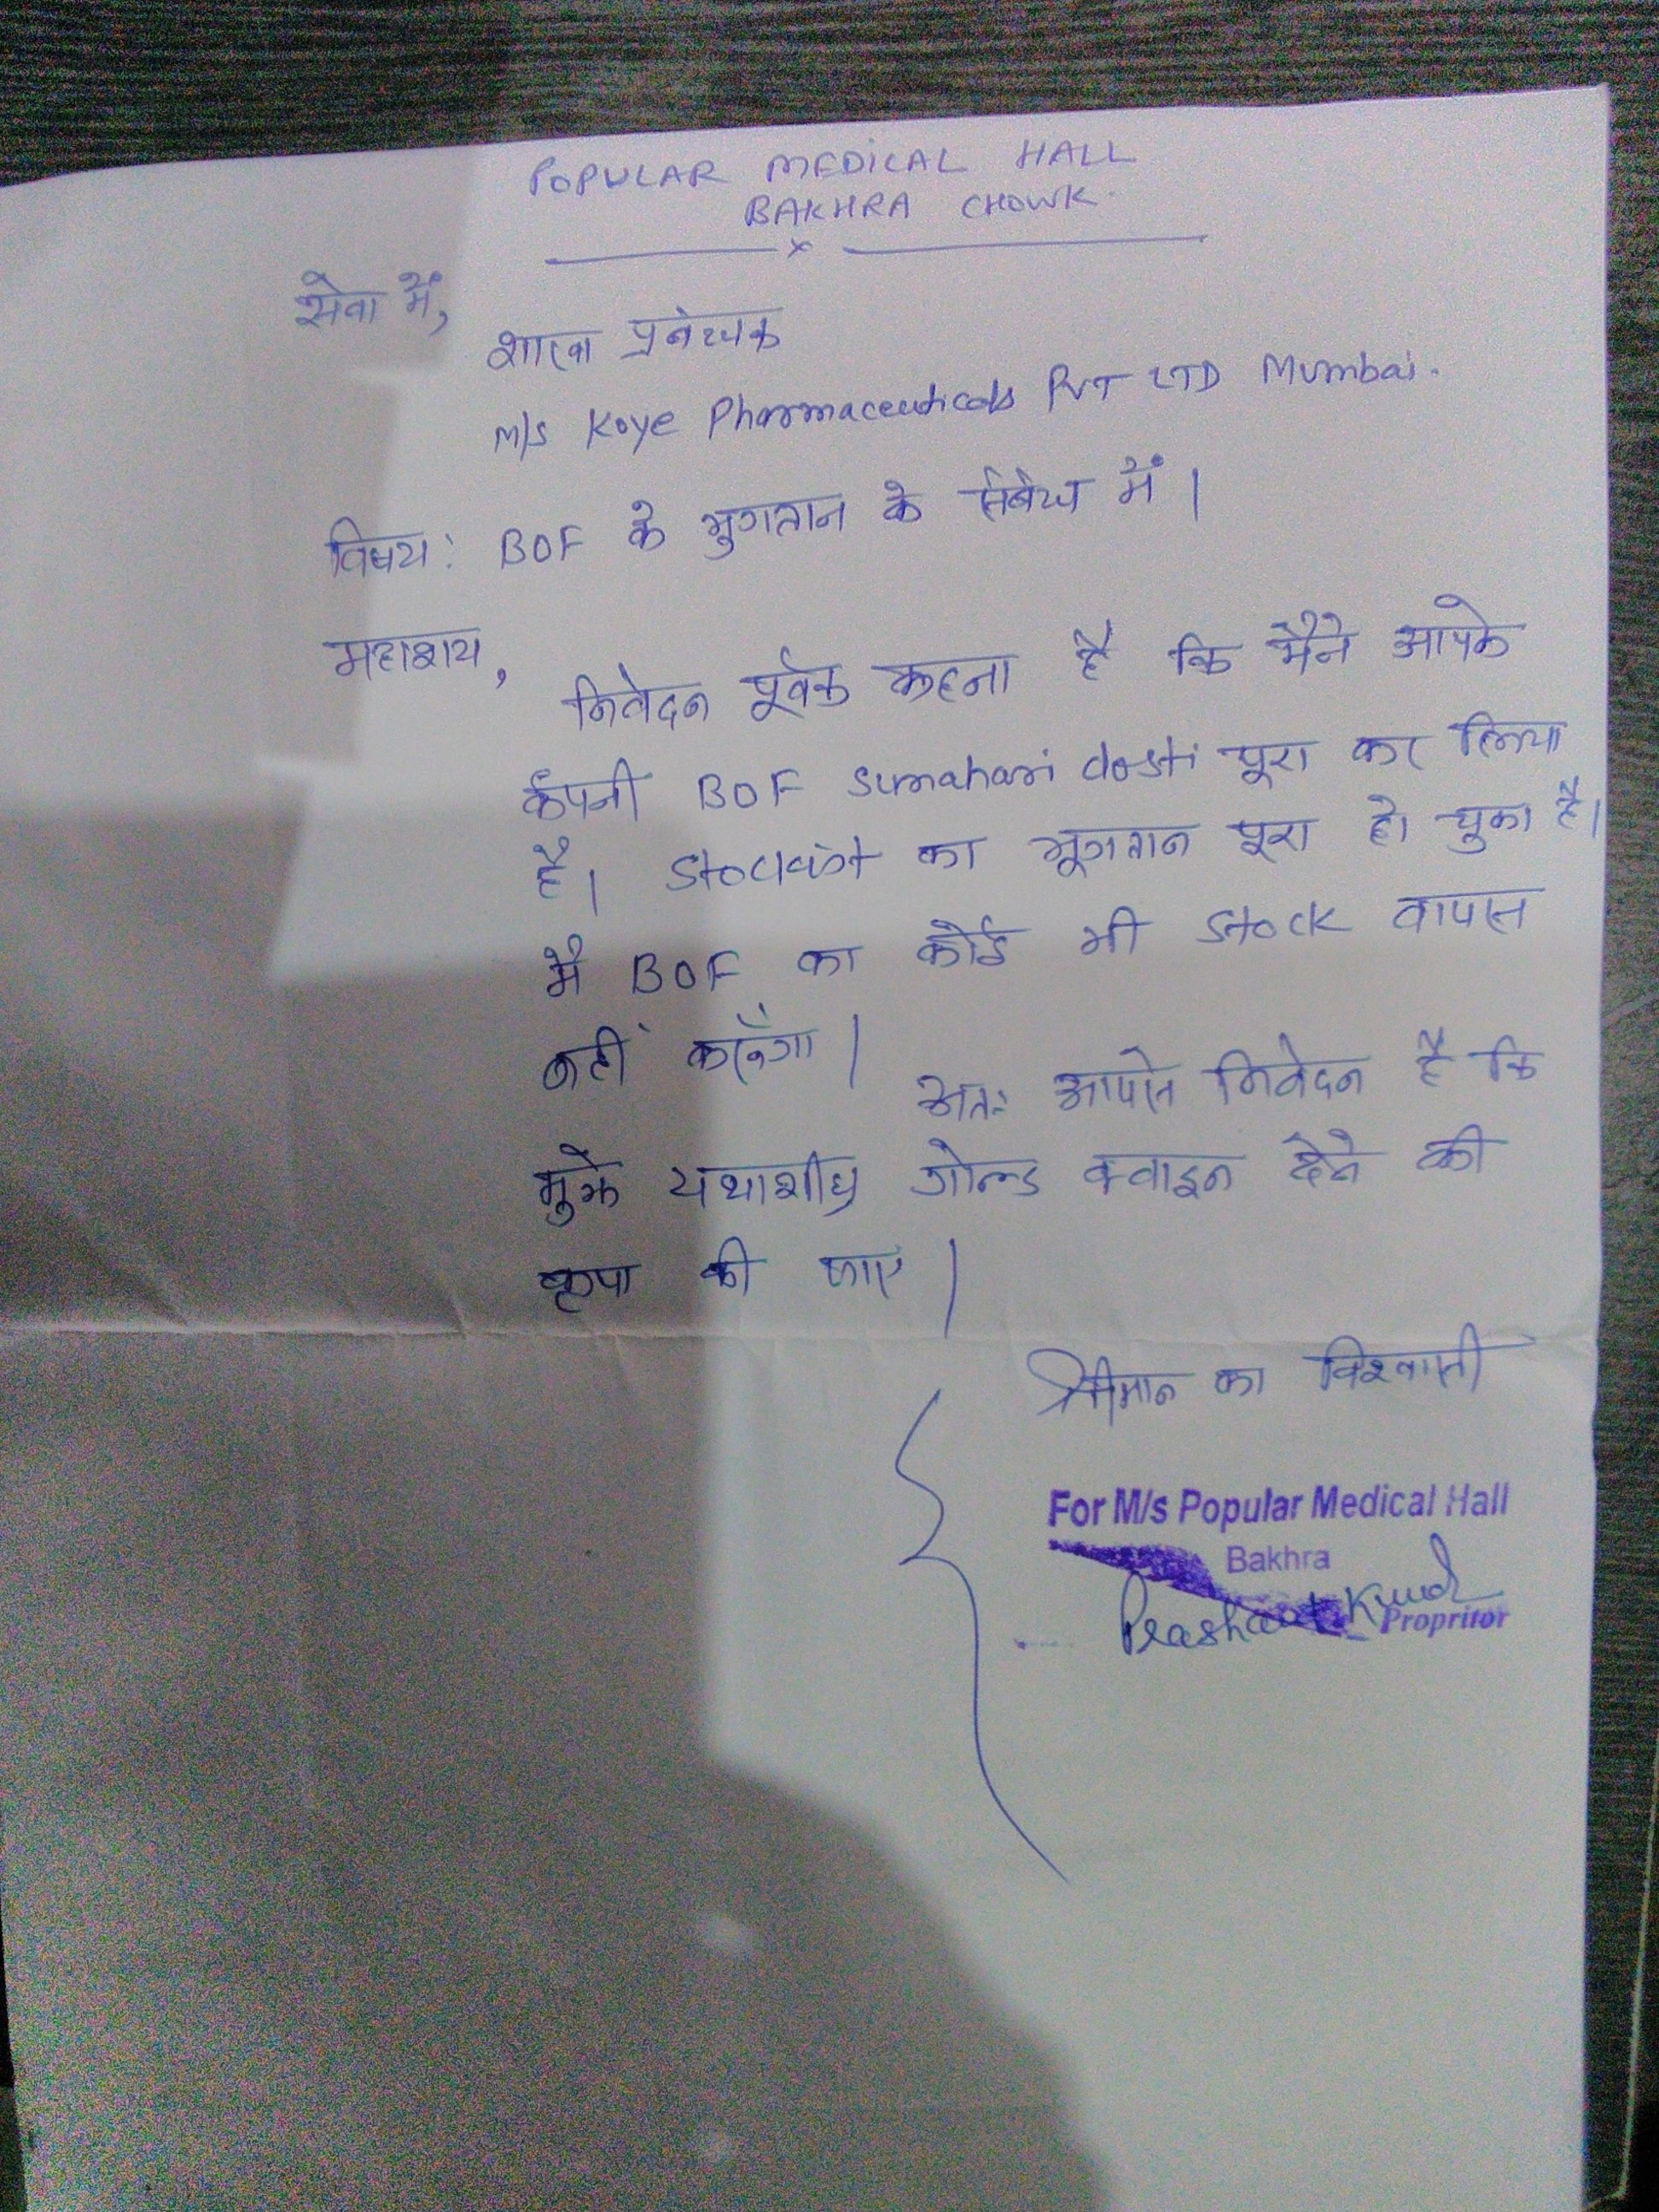 POPULAR MEDICAL HALL
BAKHRA CHOWK.
सेवा में,
शाखा प्रबंधक
M/s Koye Pharmaceuticals PVT LTD Mumbai.
विषय: BOF के भुगतान के संबंध में।
महाशय,
निवेदन पूर्वक कहना है कि मैंने आपके
कंपनी BOF sunahari dosti पूरा कर लिया
है। Stockist का भूगतान पूरा हो चुका है।
मै BOF का कोई भी stock वापस
नहीं करूँगा।
अतः आपसे निवेदन है कि
मुझे यथाशीघ्र गोल्ड क्वाइन देने की
कृपा की जाए।
श्रीमान का विश्वासी
For M/s Popular Medical Hall
Bakhra
Prashant Kumar
Propritor